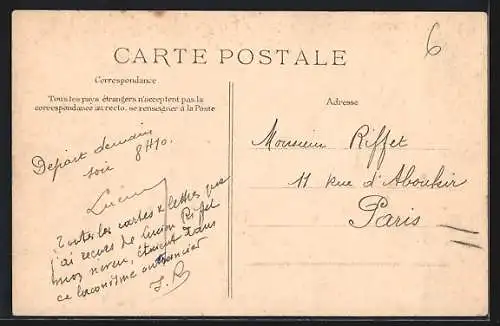 CARTE POSTALE
6
Correspondance
Tous les pays étrangers n'acceptent pas la
correspondance au recto. se renseigner à la Poste
Adresse
Départ demain
soir 8H10.
Lucien
Toutes les cartes & lettres que
j'ai reçues de Lucien Riffet
mon neveu, étaient dans
ce laconisme
J. R
Monsieur Riffet
11 rue d'Aboukir
Paris